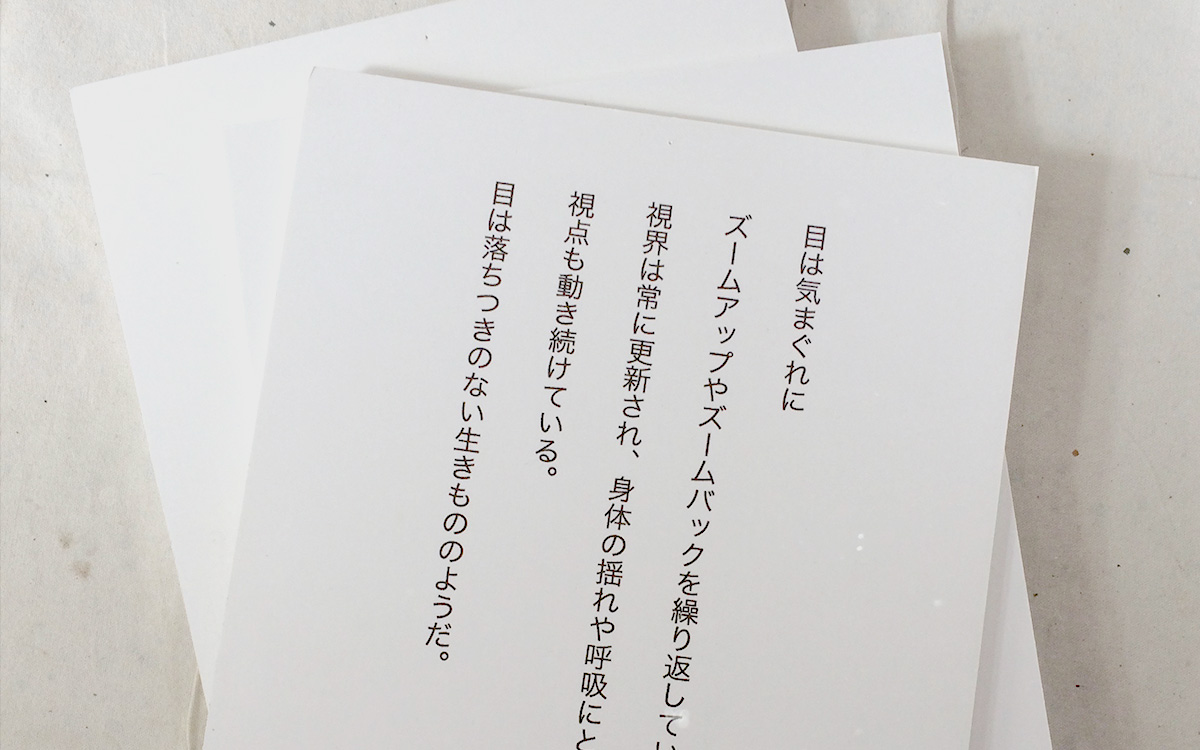 目は気まぐれに
ズームアップやズームバックを繰り返してい
視界は常に更新され、身体の揺れや呼吸にと
視点も動き続けている。
目は落ちつきのない生きもののようだ。